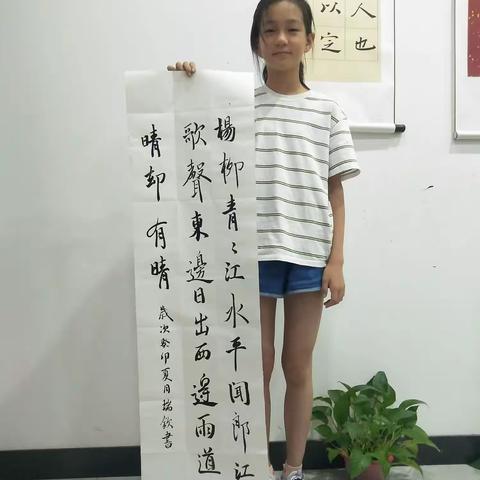 人也
以定
楊柳青〻江水平聞郎江
歌聲東邊日出西邊雨道
晴却有晴
歲次癸卯夏月書